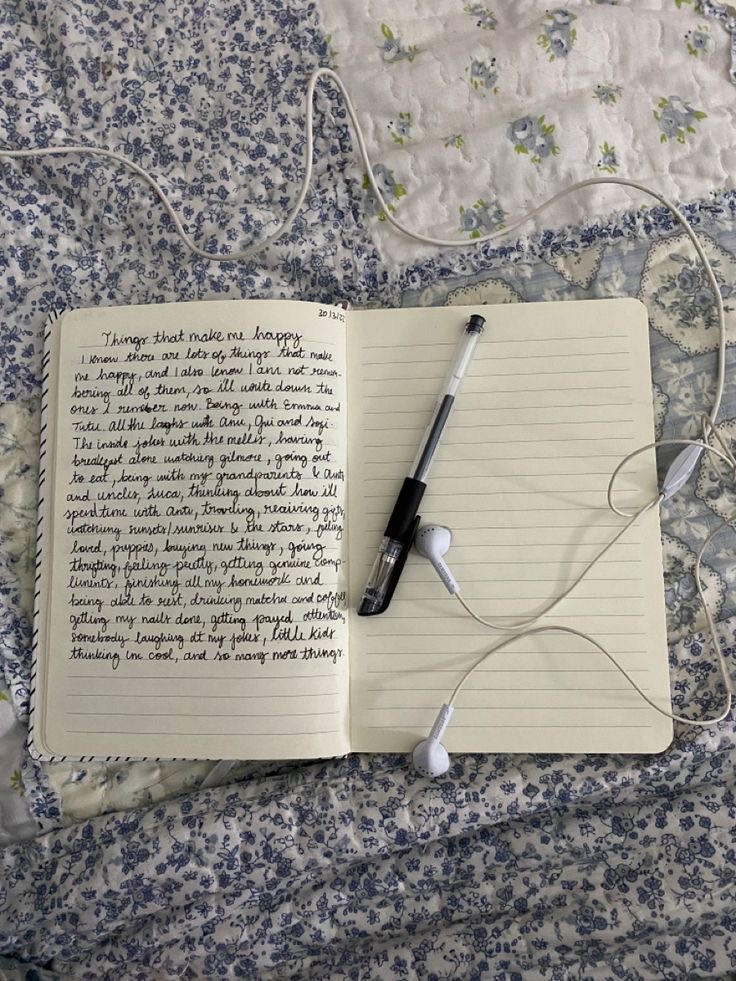 30/3/22
Things that make me happy
I know there are lots of things that make
me happy, and I also know I am not remem-
bering all of them, so i'll write down the
ones I remember now. Being with Emma and
Tutu. All the laughs with Anu, Gui and Sofi.
The inside jokes with the mellis, having
breakfast alone watching gilmore, going out
to eat, being with my grandparents & aunts
and uncles, Luca, thinking about how i'll
spend time with Antu, traveling, reaiving gifts,
watching sunsets/sunrises & the stars, feeling
loved, puppies, buying new things, going
thrifting, feeling pretty, getting genuine comp-
liments, finishing all my homework and
being able to rest, drinking matcha and coffee,
getting my nails done, getting payed attention,
somebody laughing at my jokes, little kids
thinking im cool, and so many more things.